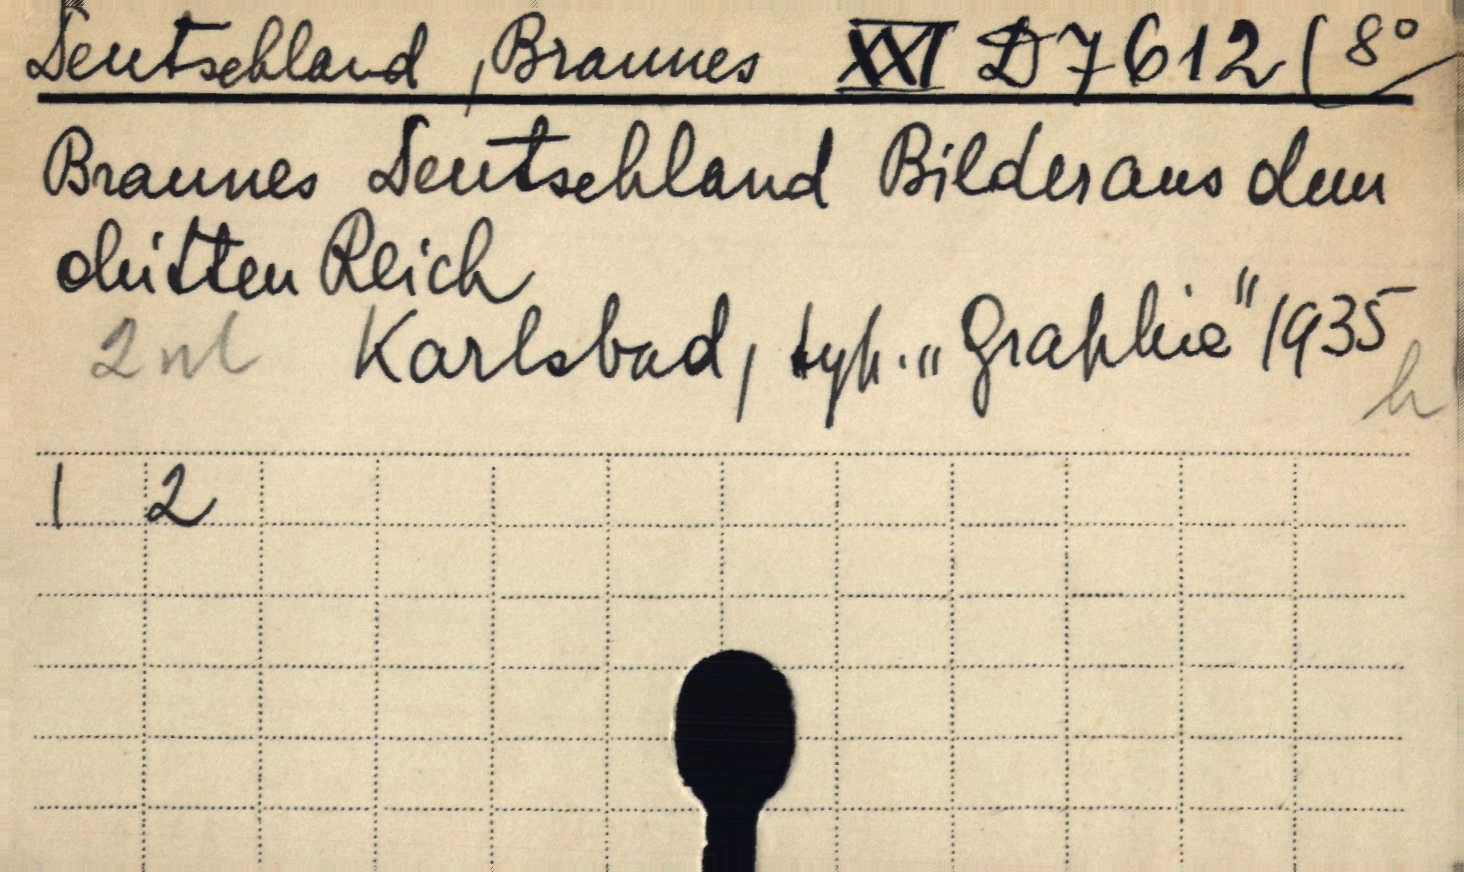 Deutschland, Braunes XXI D 7612 (8°
Braunes Deutschland Bilder aus dem
dritten Reich
2 wl Karlsbad, typ. „Graphia" 1935
h
1 2